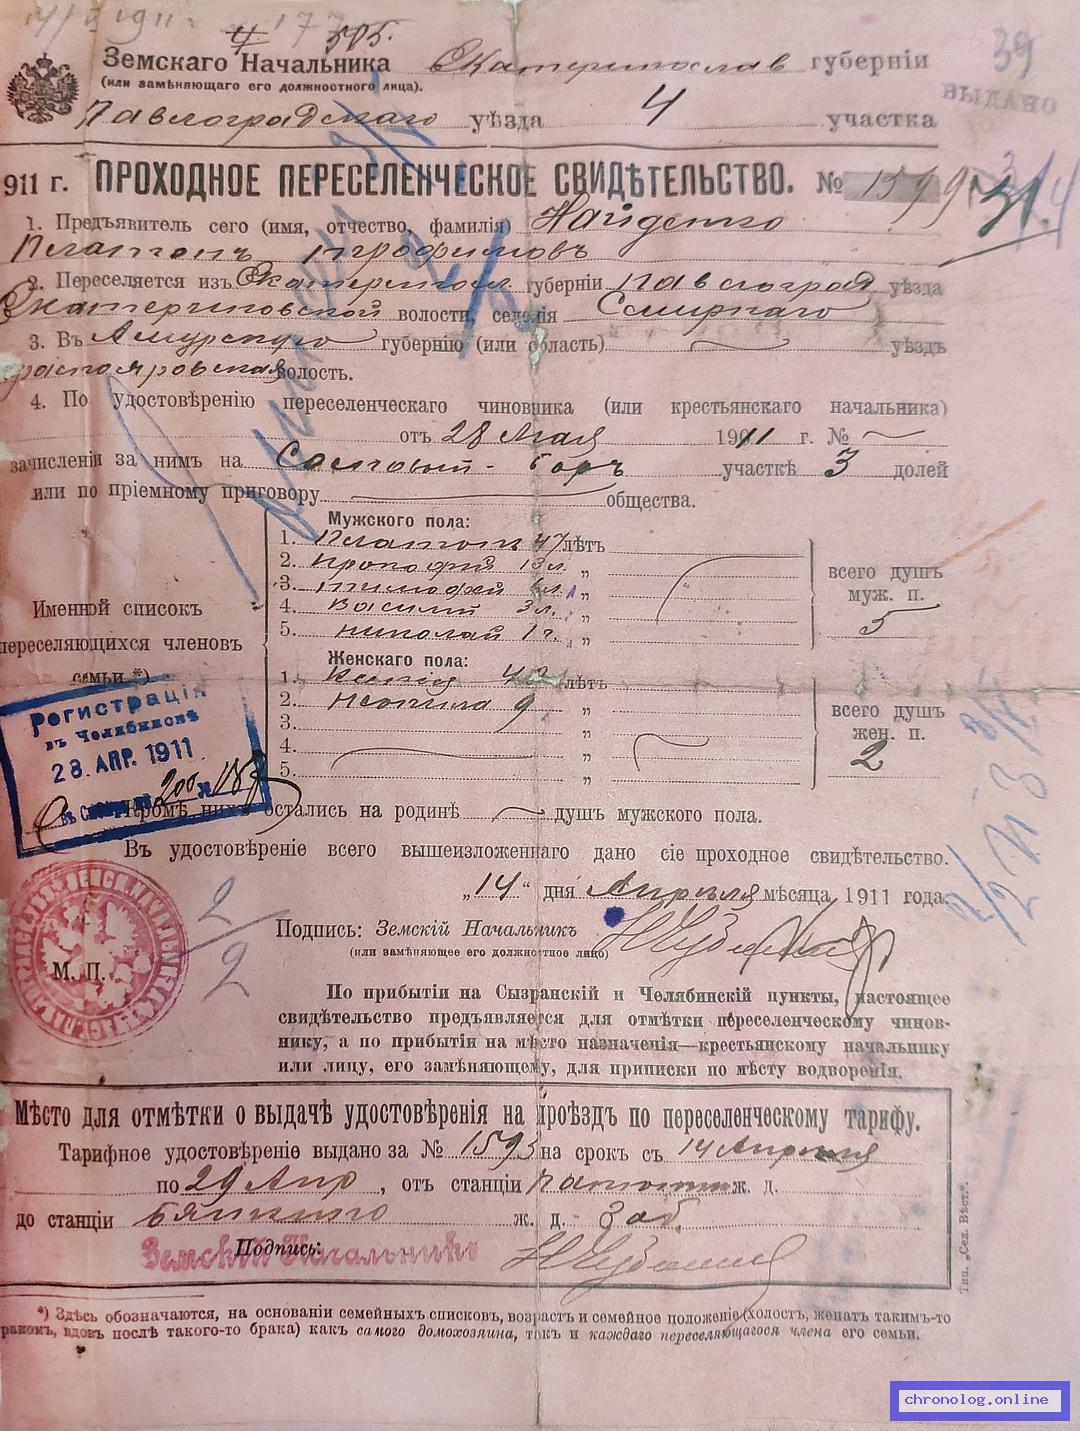 14/V 1911 г 177
4 505.
39
Земскаго Начальника Екатеринослав губерніи
(или замѣняющаго его должностного лица).
ВЫДАНО
Павлоградскаго уѣзда 4 участка
911 г. ПРОХОДНОЕ ПЕРЕСЕЛЕНЧЕСКОЕ СВИДѢТЕЛЬСТВО. № 1599
1. Предъявитель сего (имя, отчество, фамилія) Найденко
Платонъ Трофимовъ
2. Переселяется изъ Екатериносл губерніи Павлоград уѣзда
Екатериновской волости, селенія Смирнаго
3. Въ Амурскую губернію (или область) уѣздъ
волость.
4. По удостовѣренію переселенческаго чиновника (или крестьянскаго начальника)
отъ 28 Мая 1911 г. №
зачисленіи за нимъ на Сосновый-боръ участкѣ 3 долей
или по пріемному приговору общества.
Мужского пола:
1. Платонъ 47 лѣтъ
2. Прокофій 13 л. „
3. Тимофей 6 л. „
4. Василій 3 л. „
5. Николай 1 г. „
всего душъ
муж. п.
5
Именной списокъ
переселяющихся членовъ
семьи *)
Женскаго пола:
1. 42 лѣтъ
2. Неонила 9 „
3. „
4. „
5. „
всего душъ
жен. п.
2
Регистрація
въ Челябинскѣ
28. АПР. 1911
Кромѣ нихъ остались на родинѣ душъ мужского пола.
Въ удостовѣреніе всего вышеизложеннаго дано сіе проходное свидѣтельство.
„14“ дня Апрѣля мѣсяца 1911 года.
2/2
Подпись: Земскій Начальникъ
(или замѣняющее его должностное лицо)
М. П.
По прибытіи на Сызранскій и Челябинскій пункты, настоящее
свидѣтельство предъявляется для отмѣтки переселенческому чинов-
нику, а по прибытіи на мѣсто назначенія—крестьянскому начальнику
или лицу, его замѣняющему, для приписки по мѣсту водворенія.
Мѣсто для отмѣтки о выдачѣ удостовѣренія на проѣздъ по переселенческому тарифу.
Тарифное удостовѣреніе выдано за № 1593 на срокъ съ 14 Апрѣля
по 29 Апр, отъ станціи ж. д.
до станціи ж. д. Заб.
Земскій Начальникъ
Подпись:
Тип. „Сел. Вѣст.“.
*) Здѣсь обозначаются, на основаніи семейныхъ списковъ, возрастъ и семейное положеніе (холостъ, женатъ такимъ-то
ракомъ, вдовъ послѣ такого-то брака) какъ самого домохозяина, такъ и каждаго переселяющагося члена его семьи.
chronolog.online